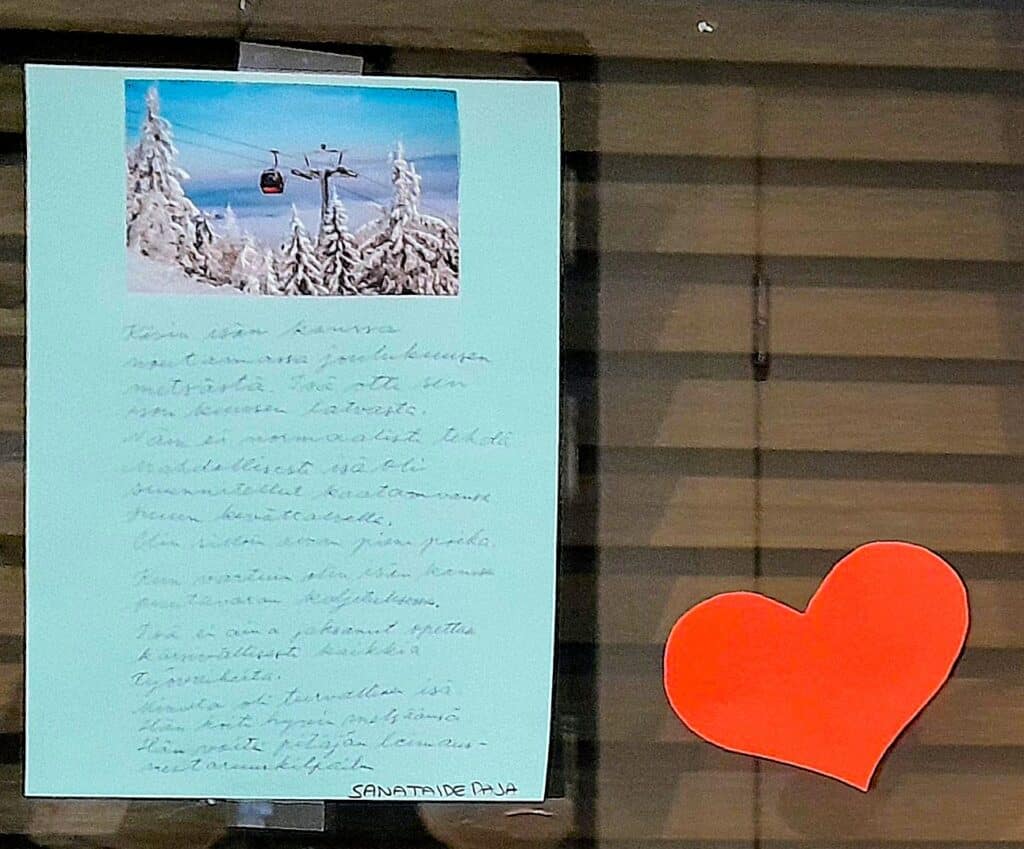 Kävin isän kanssa
noutamassa joulukuusen
metsästä. Isä otti sen
ison kuusen latvasta.
Näin ei normaalisti tehdä
Mahdollisesti isä oli
suunnitellut kaatamvansa
puun keväällä.
Olin silloin aivan pieni poika.
Kun vartuin olin isän kanssa
puutavaran
Isä ei aina jaksanut opettaa
kärsivällisesti kaikkia
työvaiheita.
Minulla oli turvallinen isä
Hän hoiti hyvin metsäänsä
Hän voitti pitäjän leimaus-
mestaruuskilpailu
SANATAIDEPAJA